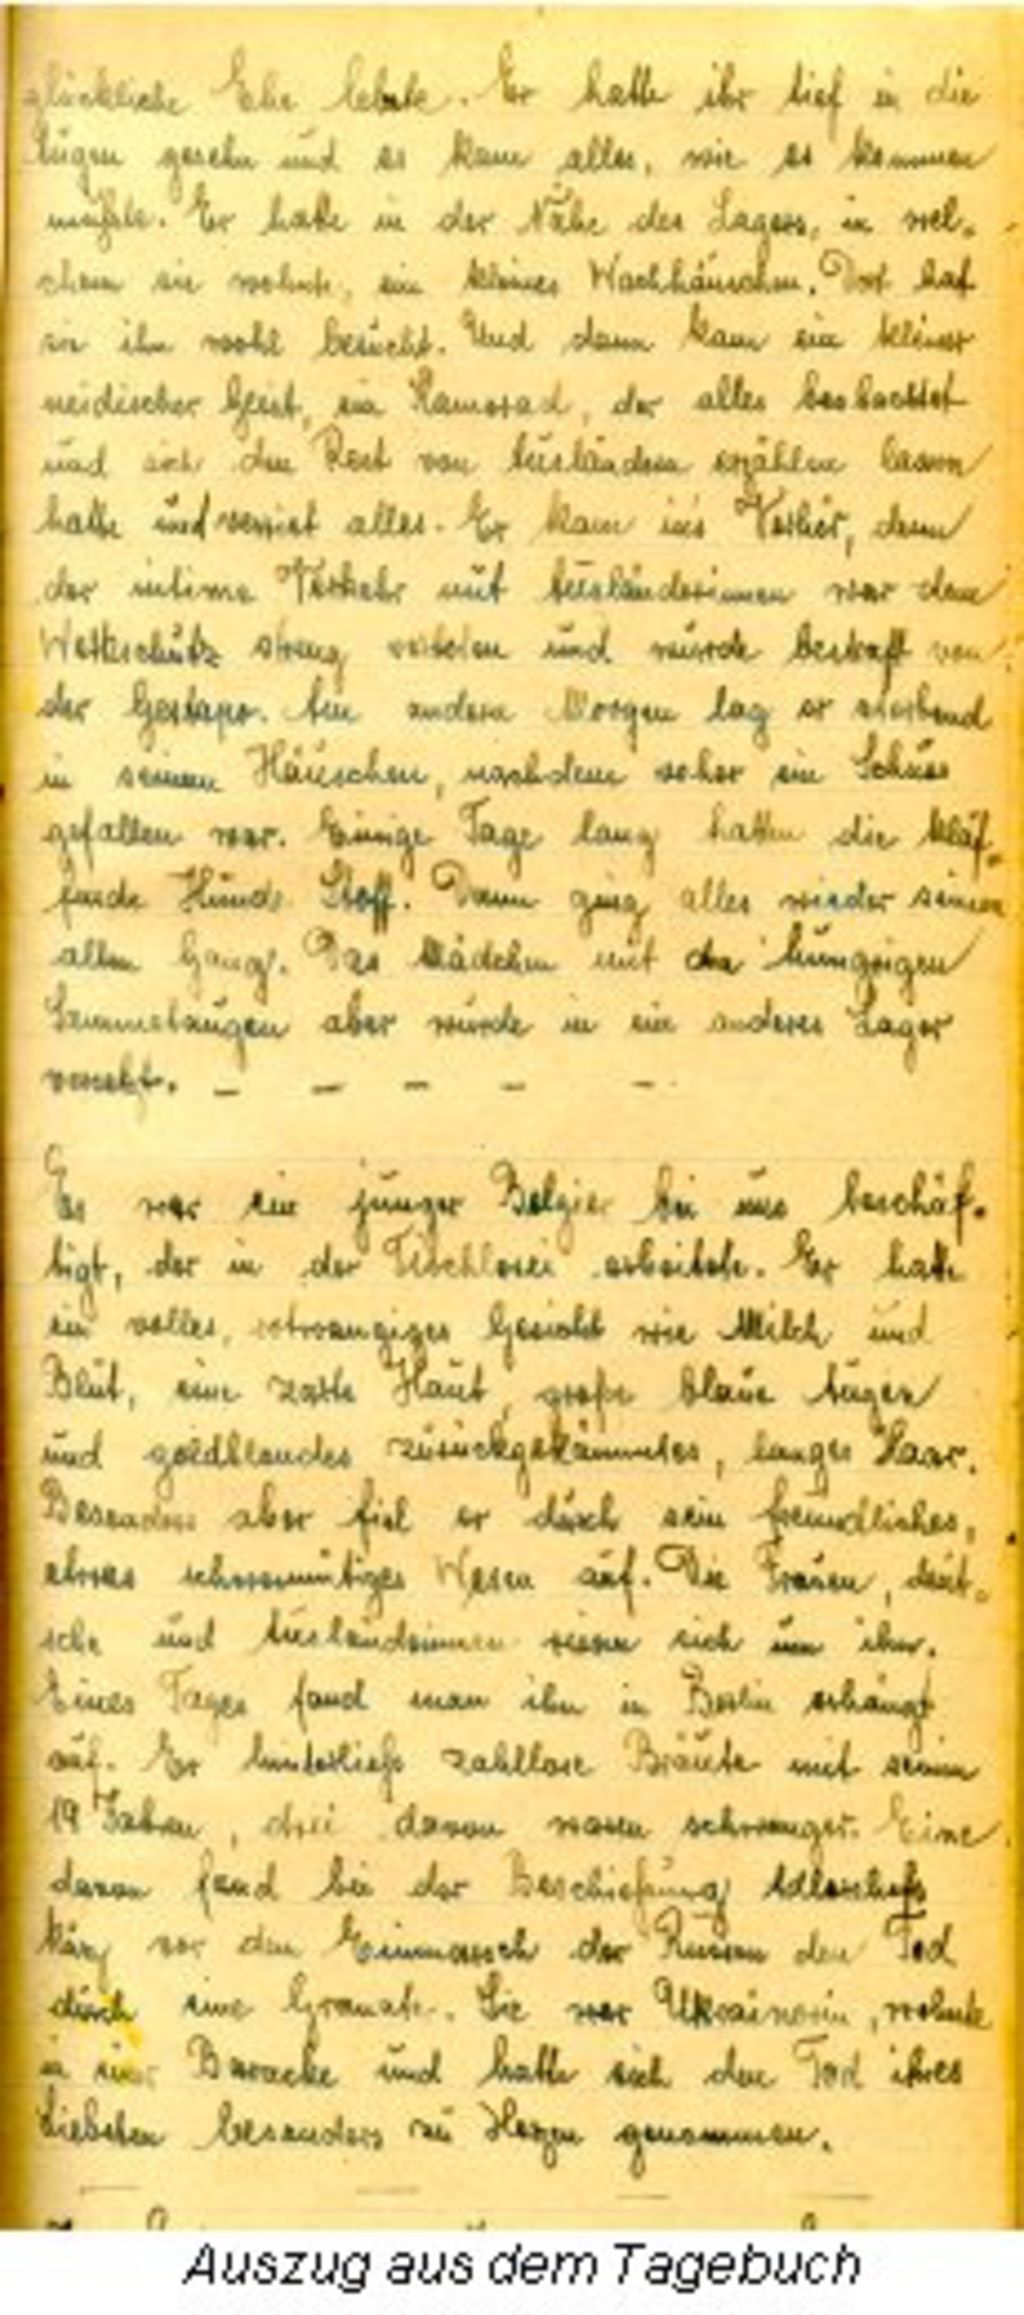 glückliche Ehe lebte. Er hatte ihr tief in die
Augen gesehn und es kam alles, wie es kommen
mußte. Er hatte in der Nähe des Lagers, in wel-
chem sie wohnte, ein kleines Wachhäuschen. Dort hat
sie ihn wohl besucht. Und dann kam ein kleiner
neidischer Geist, ein Kamerad, der alles beobachtet
und sich den Rest von Ausländern erzählen lassen
hatte und verriet alles. Er kam ins Verhör, denn
der intime Verkehr mit Ausländerinnen war dem
Werkschutz streng verboten und wurde bestraft von
der Gestapo. Am andern Morgen lag er sterbend
in seinem Häuschen, nachdem vorher ein Schuss
gefallen war. Einige Tage lang hatten die kläf-
fende Hunde Stoff. Dann ging alles wieder seinen
alten Gang. Das Mädchen mit den hungrigen
Sammetaugen aber wurde in ein anderes Lager
versetzt. — — — — —
Es war ein junger Belgier bei uns beschäf-
tigt, der in der Tischlerei arbeitete. Er hatte
ein volles, rotwangiges Gesicht wie Milch und
Blut, eine zarte Haut, große blaue Augen
und goldblondes zurückgekämmtes, langes Haar.
Besonders aber fiel er durch sein freundliches,
etwas schwermütiges Wesen auf. Die Frauen, deut-
sche und Ausländerinnen rissen sich um ihn.
Eines Tages fand man ihn in Berlin erhängt
auf. Er hinterließ zahllose Bräute mit seinen
19 Jahren, drei davon waren schwanger. Eine
davon fand bei der Beschießung Adlershofs
kurz vor dem Einmarsch der Russen den Tod
durch eine Granate. Sie war Ukrainerin, wohnte
in einer Baracke und hatte sich den Tod ihres
Liebsten besonders zu Herzen genommen.
Auszug aus dem Tagebuch